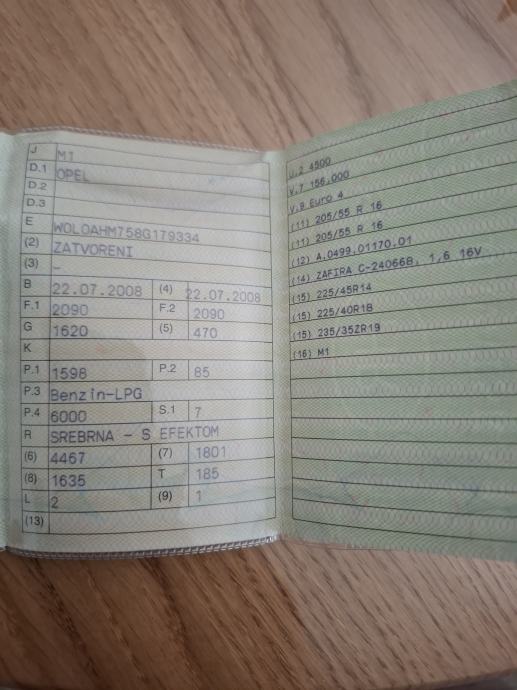 J M1
D.1 OPEL
D.2
D.3
E W0L0AHM758G179334
(2) ZATVORENI
(3) –
B 22.07.2008 (4) 22.07.2008
F.1 2090 F.2 2090
G 1620 (5) 470
K
P.1 1598 P.2 85
P.3 Benzin-LPG
P.4 6000 S.1 7
R SREBRNA - S EFEKTOM
(6) 4467 (7) 1801
(8) 1635 T 185
L 2 (9) 1
(13)
U.2 4500
V.7 156.000
V.9 Euro 4
(11) 205/55 R 16
(11) 205/55 R 16
(12) A.0499.01170.01
(14) ZAFIRA C-24066B, 1,6 16V
(15) 225/45R14
(15) 225/40R18
(15) 235/35ZR19
(16) M1